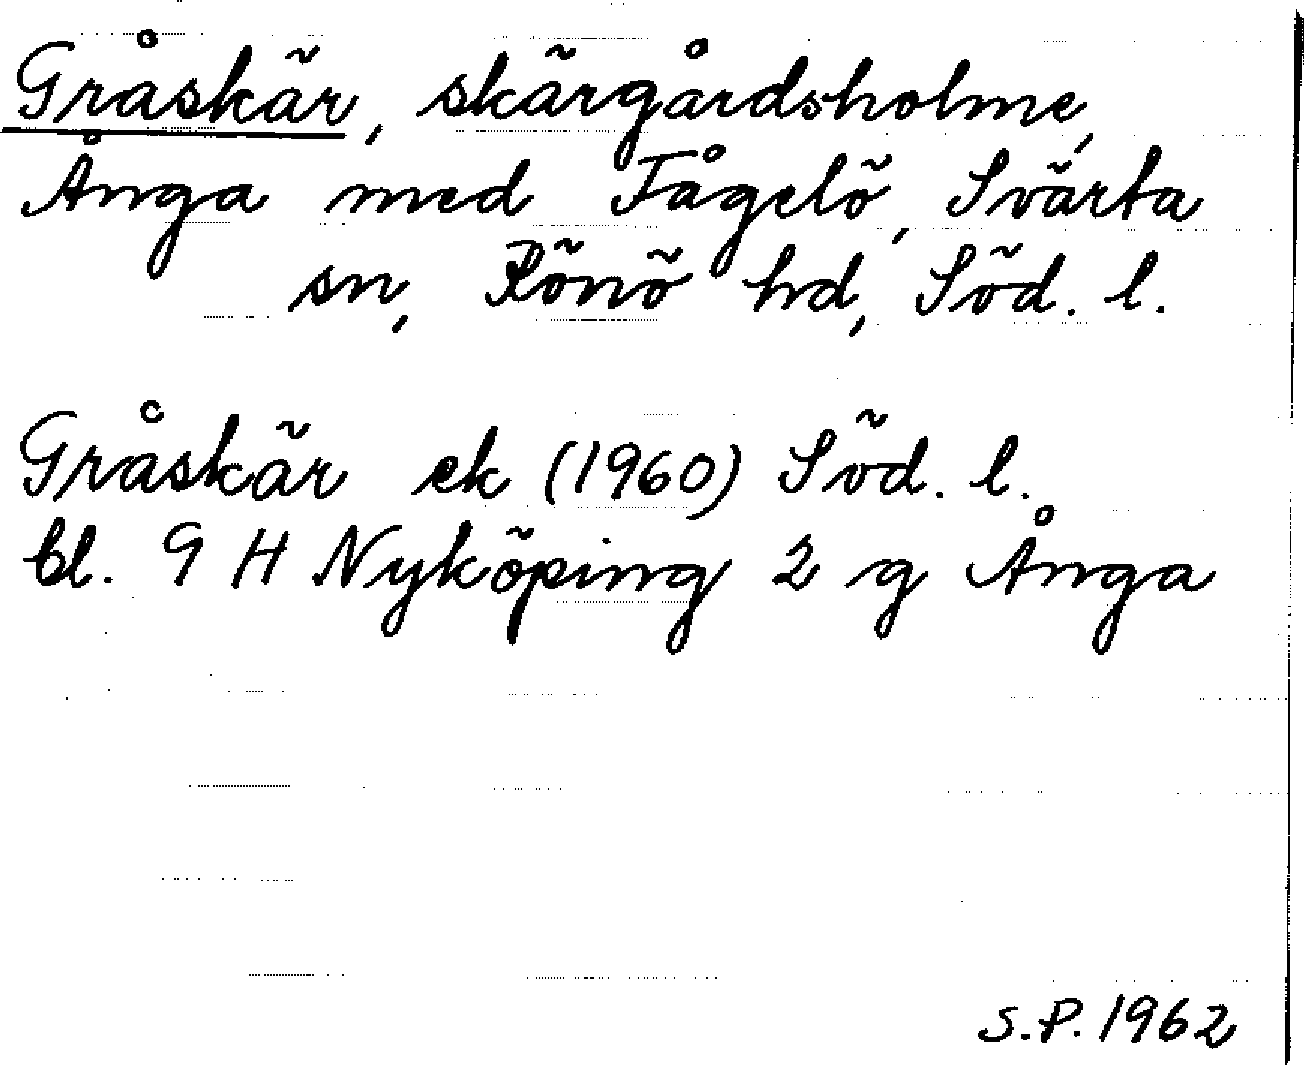 Gråskär, skärgårdsholme,
Ånga med Fågelö, Svärta
sn, Rönö hd, Söd. l.
Gråskär ek (1960) Söd. l.
bl. 9 H Nyköping 2 g Ånga
S.P. 1962